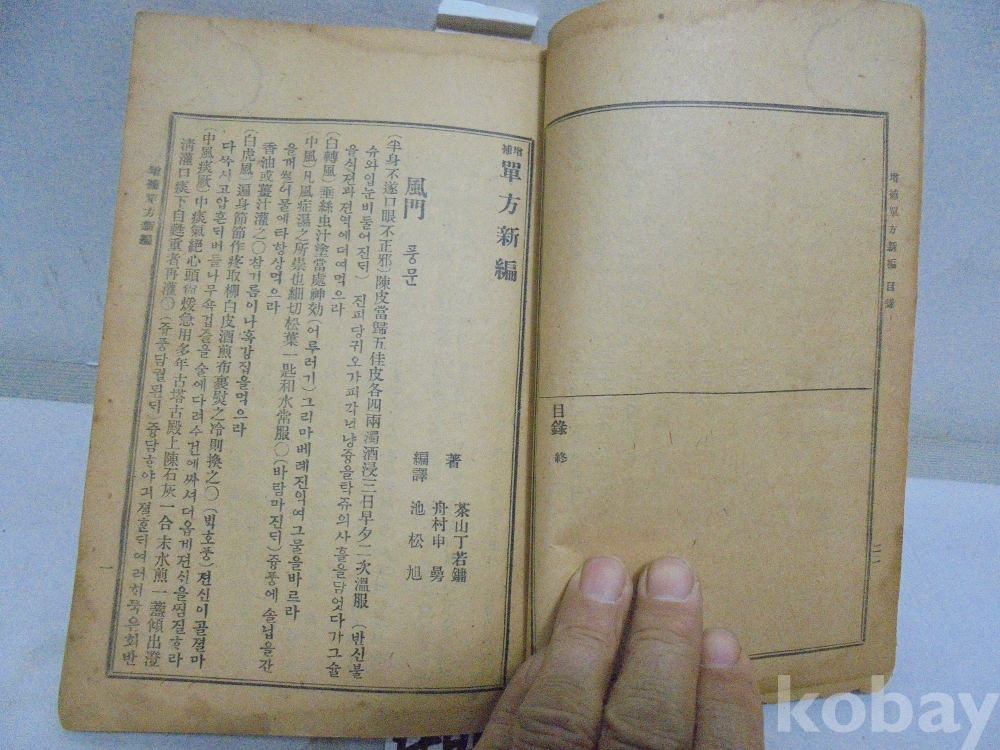 增補單方新編 目錄
目錄 終
增補 單方新編
著 茶山丁若鏞
舟村申曼
編譯 池松旭
風門 풍문
(半身不遂口眼不正邪)陳皮當歸五佳皮各四兩濁酒浸三日早夕二次溫服 (반신불
슈와입눈비둘어진ᄃᆡ) 진피당귀오가피각넉냥즁을탁쥬의사흘을담엇다가그슐
을식젼과젼역에더여먹으라
(白轉風)垂絲虫汁塗當處神効(어루러기)그리마베레진익여그물을바르라
(中風)凡風症濕之所祟也細切松葉一匙和水常服〇(바람마진ᄃᆡ)즁풍에솔닙을잔
을깨쓸어물에타항상먹으라
香油或薑汁灌之〇참기름이나흑강집을먹으라
(白虎風)遍身節節作疼取柳白皮酒煎布裹熨之冷則換之〇(ᄇᆡᆨ호풍)젼신이골졀마
다쑤시고압흔ᄃᆡ버들나무속겁즐을술에다려수건에싸셔더웁게젼신을찜질ᄒᆞ라
(中風痰厥)中痰氣絕心頭尙煖急用多年古塔古殿上陳石灰一合末水煎一盞傾出澄
淸灌口痰下自甦重者再灌〇(즁풍담궐된ᄃᆡ)즁담ᄒᆞ야긔졀ᄒᆞᆫᄃᆡ여러ᄒᆡ묵은회반
增補單方新編
一
kobay